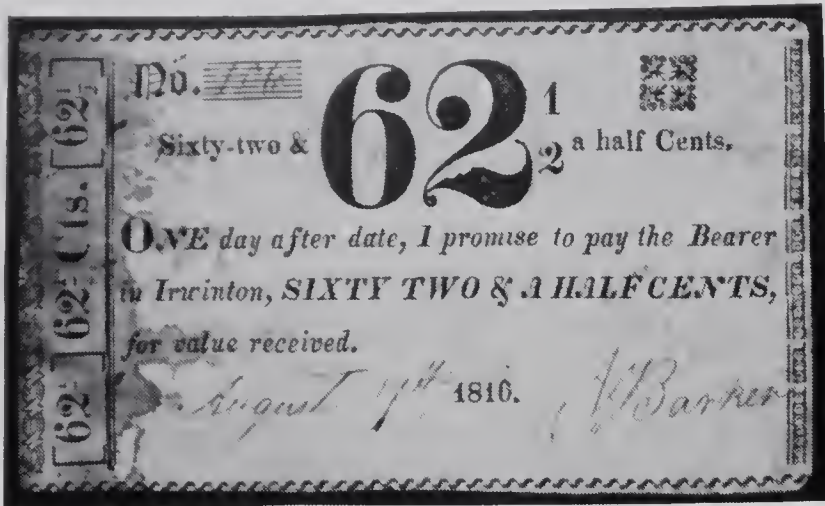 [62½] 62½ Cts. [62½]
No.
62 1/2
Sixty-two & a half Cents.
ONE day after date, I promise to pay the Bearer
in Irwinton, SIXTY TWO & A HALF CENTS,
for value received.
August 1816. Barker